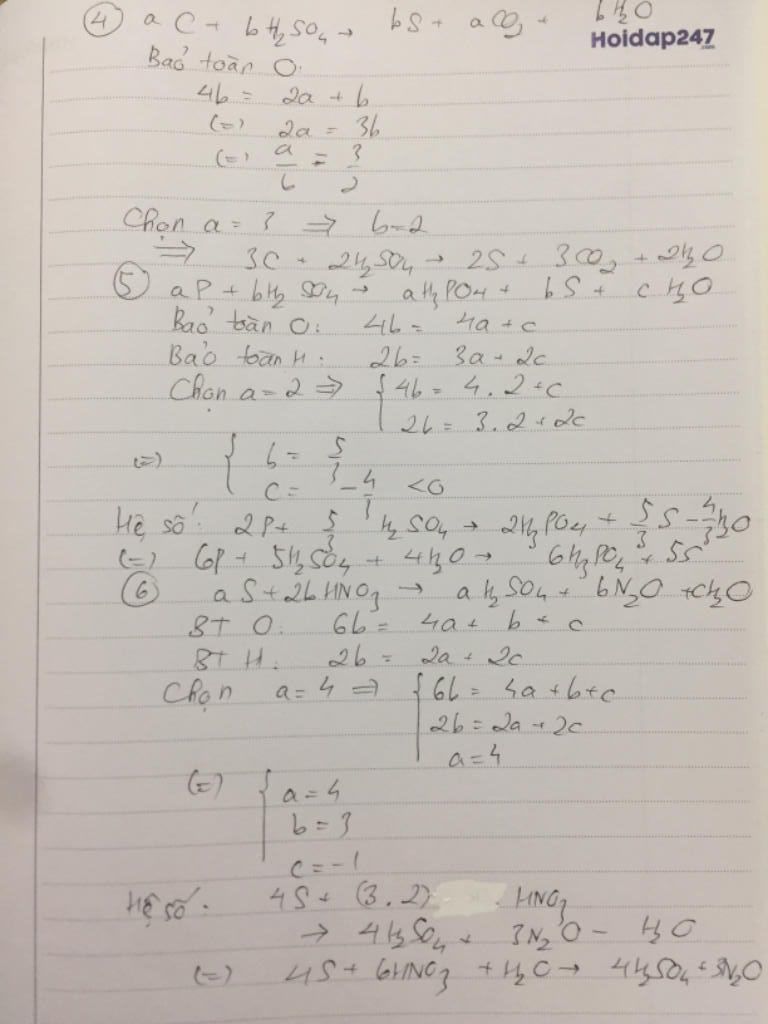 ④ aC + bH₂SO₄ → bS + aCO₂ + bH₂O
Hoidap247.com
Bảo toàn O:
4b = 2a + b
(=) 2a = 3b
(=) a/b = 3/2
Chọn a = 3 ⇒ b = 2
⇒ 3C + 2H₂SO₄ → 2S + 3CO₂ + 2H₂O
⑤ aP + bH₂SO₄ → aH₃PO₄ + bS + cH₂O
Bảo toàn O: 4b = 4a + c
Bảo toàn H: 2b = 3a + 2c
Chọn a = 2 ⇒ { 4b = 4.2 + c
2b = 3.2 + 2c
(=) { b = 5/3
c = -4/3 < 0
Hệ số: 2P + 5/3 H₂SO₄ → 2H₃PO₄ + 5/3 S - 4/3 H₂O
(=) 6P + 5H₂SO₄ + 4H₂O → 6H₃PO₄ + 5S
⑥ aS + 2bHNO₃ → aH₂SO₄ + bN₂O + cH₂O
BT O: 6b = 4a + b + c
BT H: 2b = 2a + 2c
Chọn a = 4 ⇒ { 6b = 4a + b + c
2b = 2a + 2c
a = 4
(=) { a = 4
b = 3
c = -1
Hệ số: 4S + (3.2) . HNO₃
→ 4H₂SO₄ + 3N₂O - H₂O
(=) 4S + 6HNO₃ + H₂O → 4H₂SO₄ + 3N₂O